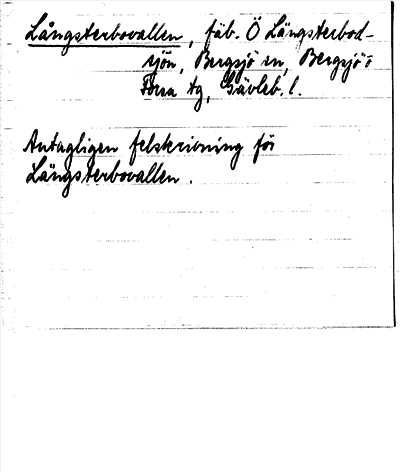 Långsterbovallen, fäb. Ö Längsterbod-
sjön, Bergsjö sn, Bergsjö o
Forsa tg, Gävleb. l.
Antagligen felskrivning för
Längsterbovallen.